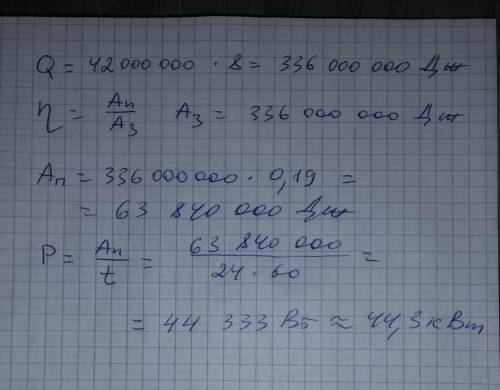 Q = 42 000 000 · 8 = 336 000 000 Дж
η = Aп/Aз   Aз = 336 000 000 Дж
Aп = 336 000 000 · 0,19 =
= 63 840 000 Дж
P = Aп/t = 63 840 000/24·60 =
= 44 333 Вт ≈ 44,3 кВт